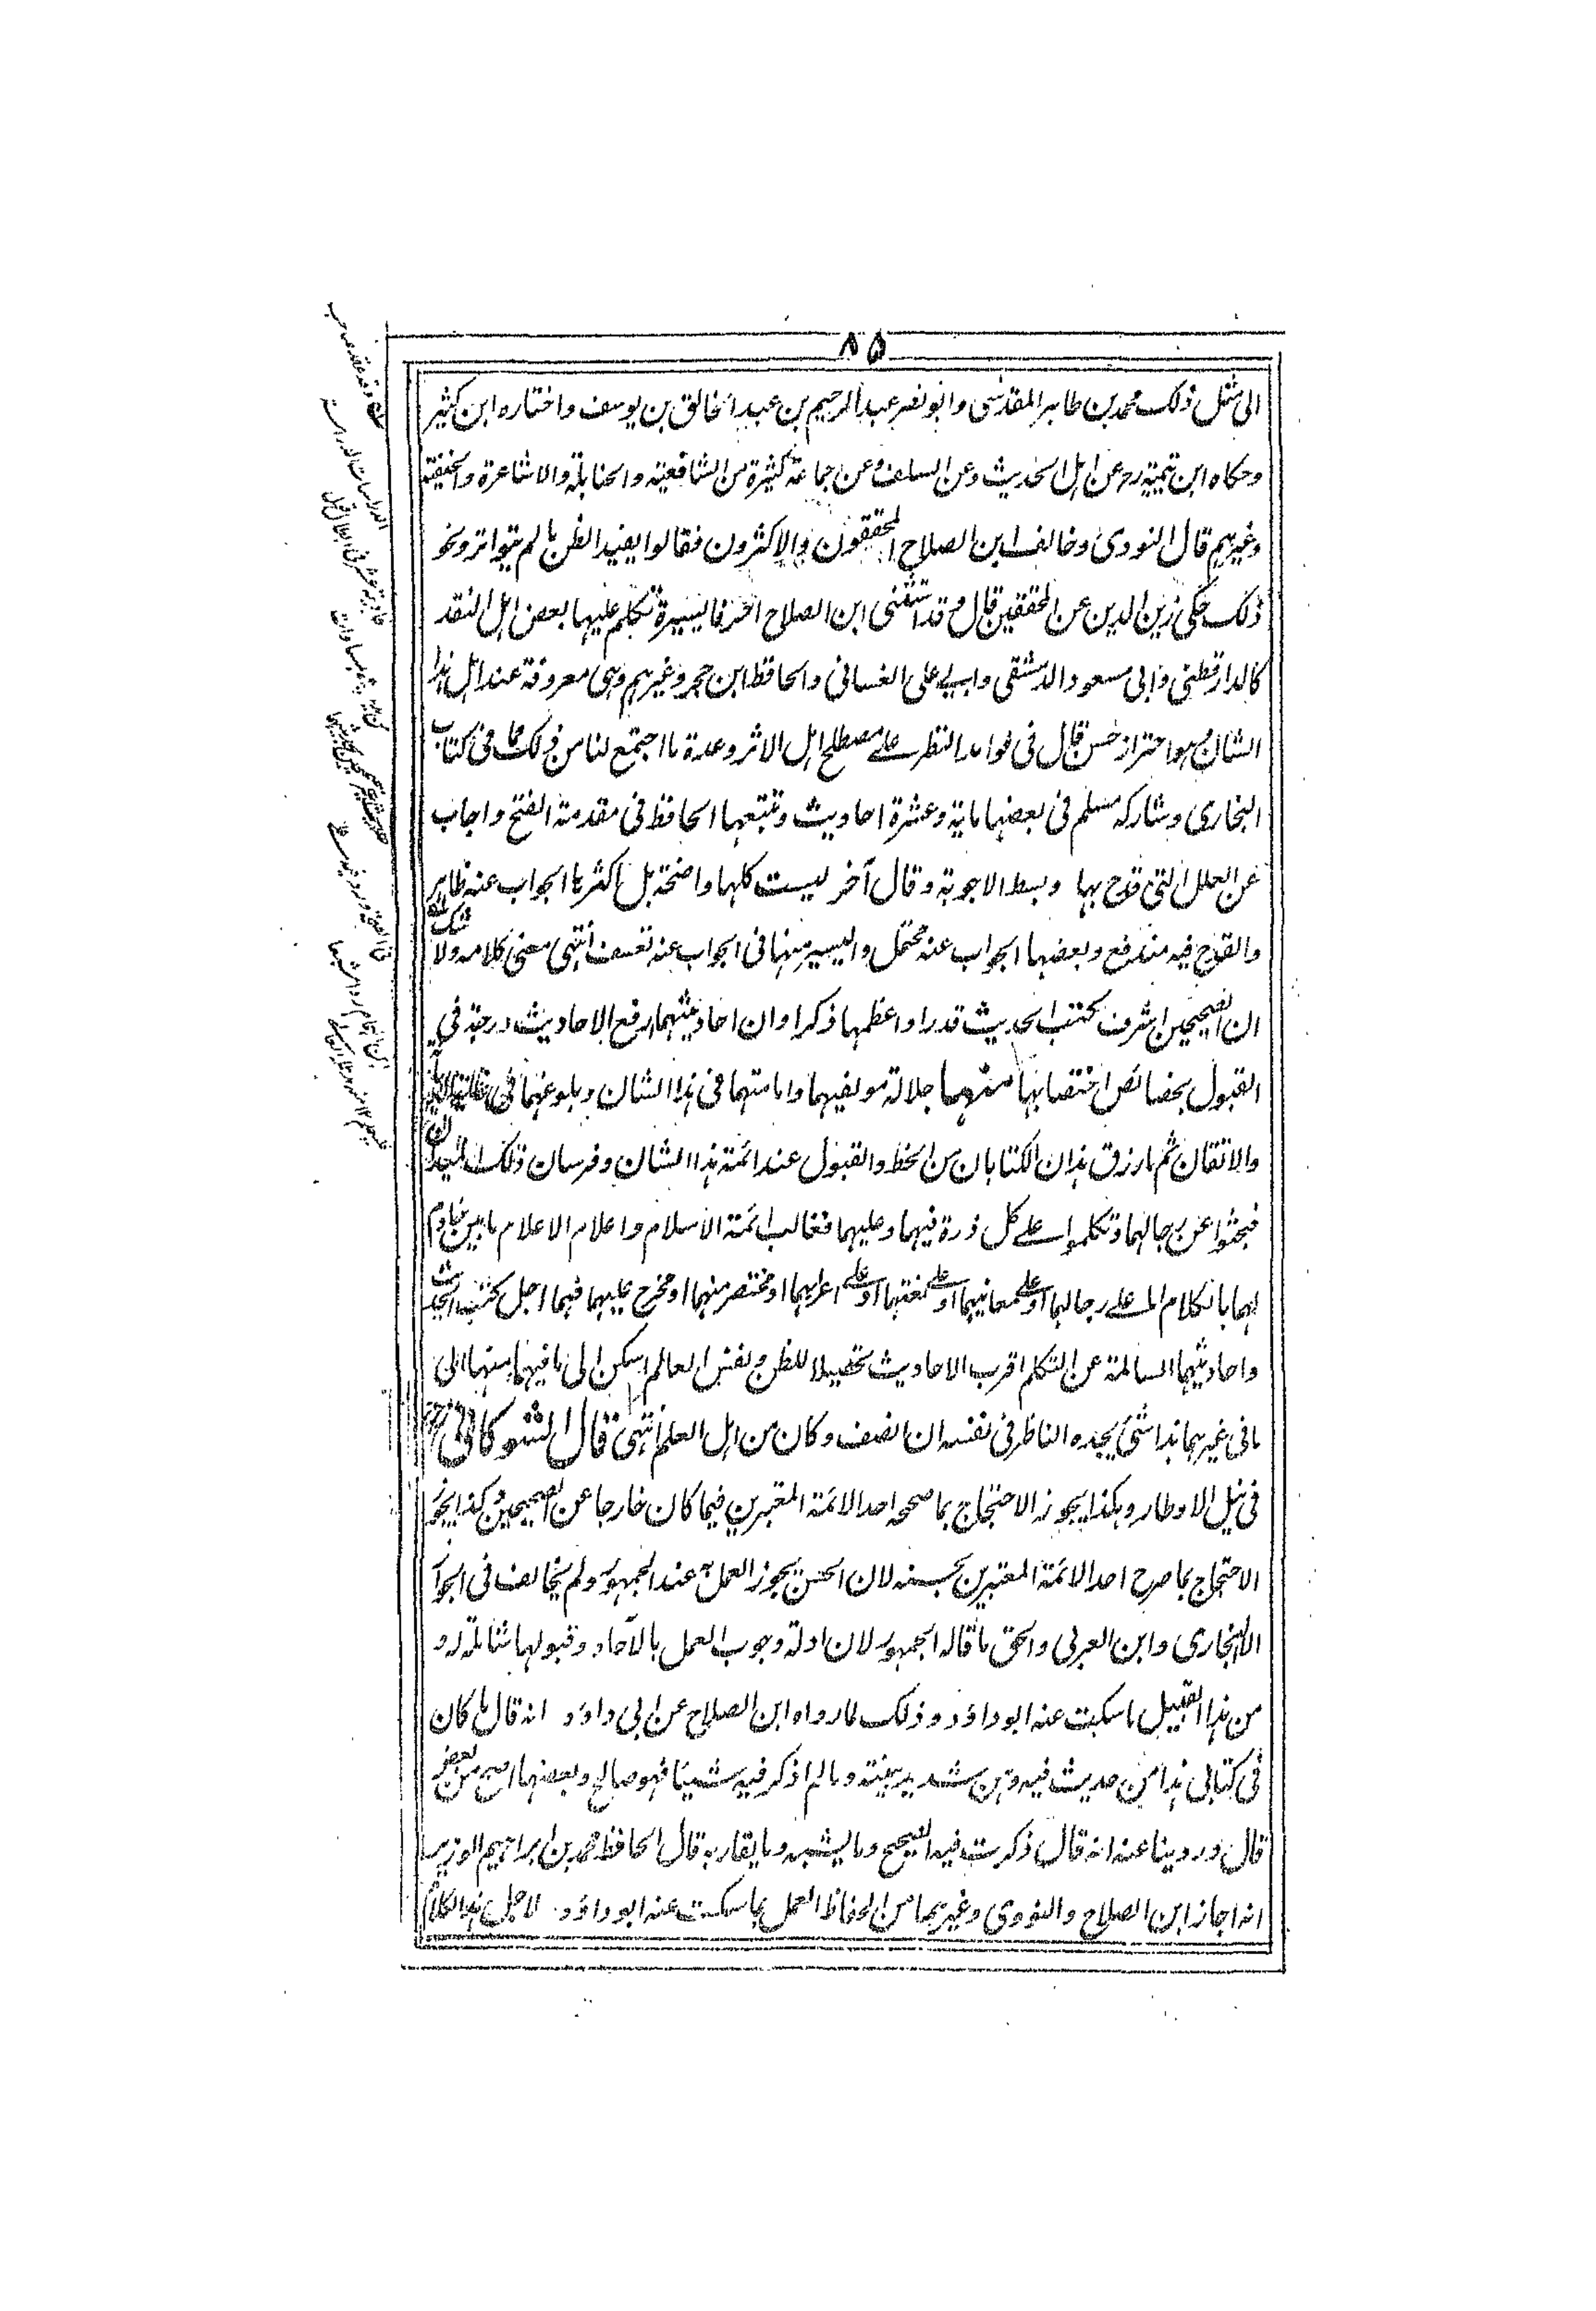 ٨٥
الى مثل ذلك محمد بن طاهر المقدسى وابو نصر عبد الرحيم بن عبد الخالق بن يوسف واختاره ابن كثير
وحكاه ابن تيمية رح عن اهل الحديث وعن السلف وعن جماعة كثيرة من الشافعية والحنابلة والاشاعرة والحنفية
وغيرهم قال النووى وخالف ابن الصلاح المحققون والاكثرون فقالوا يفيد الظن ما لم يتواتر ونحو
ذلك حكى زين الدين عن المحققين قال وقد استثنى ابن الصلاح احرفا يسيرة تكلم عليها بعض اهل النقد
كالدارقطنى وابى مسعود الدمشقى وابى على الغسانى والحافظ ابن حجر وغيرهم وهى معروفة عند اهل هذا
الشان وهو احتراز حسن قال فى قواعد النظر على مصطلح اهل الاثر وعدة ما اجتمع لنا من ذلك مما فى كتاب
البخارى وشاركه مسلم فى بعضها ماية وعشرة احاديث وتتبعها الحافظ فى مقدمة الفتح واجاب
عن العلل التى قدح بها وبسط الاجوبة وقال آخر ليست كلها واضحة بل اكثرها الجواب عنه ظاهر
والقدح فيه مندفع وبعضها الجواب عنه محتمل واليسير منها فى الجواب عنه تعسف انتهى معنى كلامه ولا شك
ان الصحيحين اشرف كتب الحديث قدرا واعظمها ذكرا وان احاديثهما ارفع الاحاديث درجة فى
القبول بخصائص اختصا بها منهما جلالة مولفيهما وامامتهما فى هذا الشان وبلوغهما فى
والاتقان ثم ما رزق هذان الكتابان من الحظ والقبول عند ائمة هذا الشان وفرسان ذلك الميدان
فبحثوا عن رجالهما وتكلموا على كل ذرة فيهما وعليهما فغالب ائمة الاسلام واعلام الاعلام ما بين خادم
لهما بالكلام اما على رجالهما او على معانيهما او على لغتهما او على اعرابهما او مختصر منهما او مخرج عليهما فهما اجل كتب الحديث
واحاديثهما السالمة عن التكلم اقرب الاحاديث تحصيلا للظن ونفس العالم اسكن الى ما فيهما منها الى
ما فى غيرهما هذا شئ يجده الناظر فى نفسه ان انصف وكان من اهل العلم انتهى قال الشوكانى رح
فى نيل الاوطار وهكذا يجوز الاحتجاج بما صححه احد الائمة المعتبرين فيما كان خارجا عن الصحيحين وكذا يجوز
الاحتجاج بما صرح احد الائمة المعتبرين بحسنه لان الحسن يجوز العمل به عند الجمهور ولم يخالف فى الجواز
الا البخارى وابن العربى والحق ما قاله الجمهور لان ادلة وجوب العمل بالآحاد وقبولها شاملة له و
من هذا القبيل ما سكت عنه ابو داؤد وذلك لما رواه ابن الصلاح عن ابى داؤد انه قال ما كان
فى كتابى هذا من حديث فيه وهن شديد بينته وما لم اذكر فيه شيئا فهو صالح وبعضها اصح من بعض
قال وروينا عنه انه قال ذكرت فيه الصحيح وما يشبهه وما يقاربه قال الحافظ محمد بن ابراهيم الوزير
انه اجاز ابن الصلاح والنووى وغيرهما من الحفاظ العمل بما سكت عنه ابو داؤد لاجل هذا الكلام